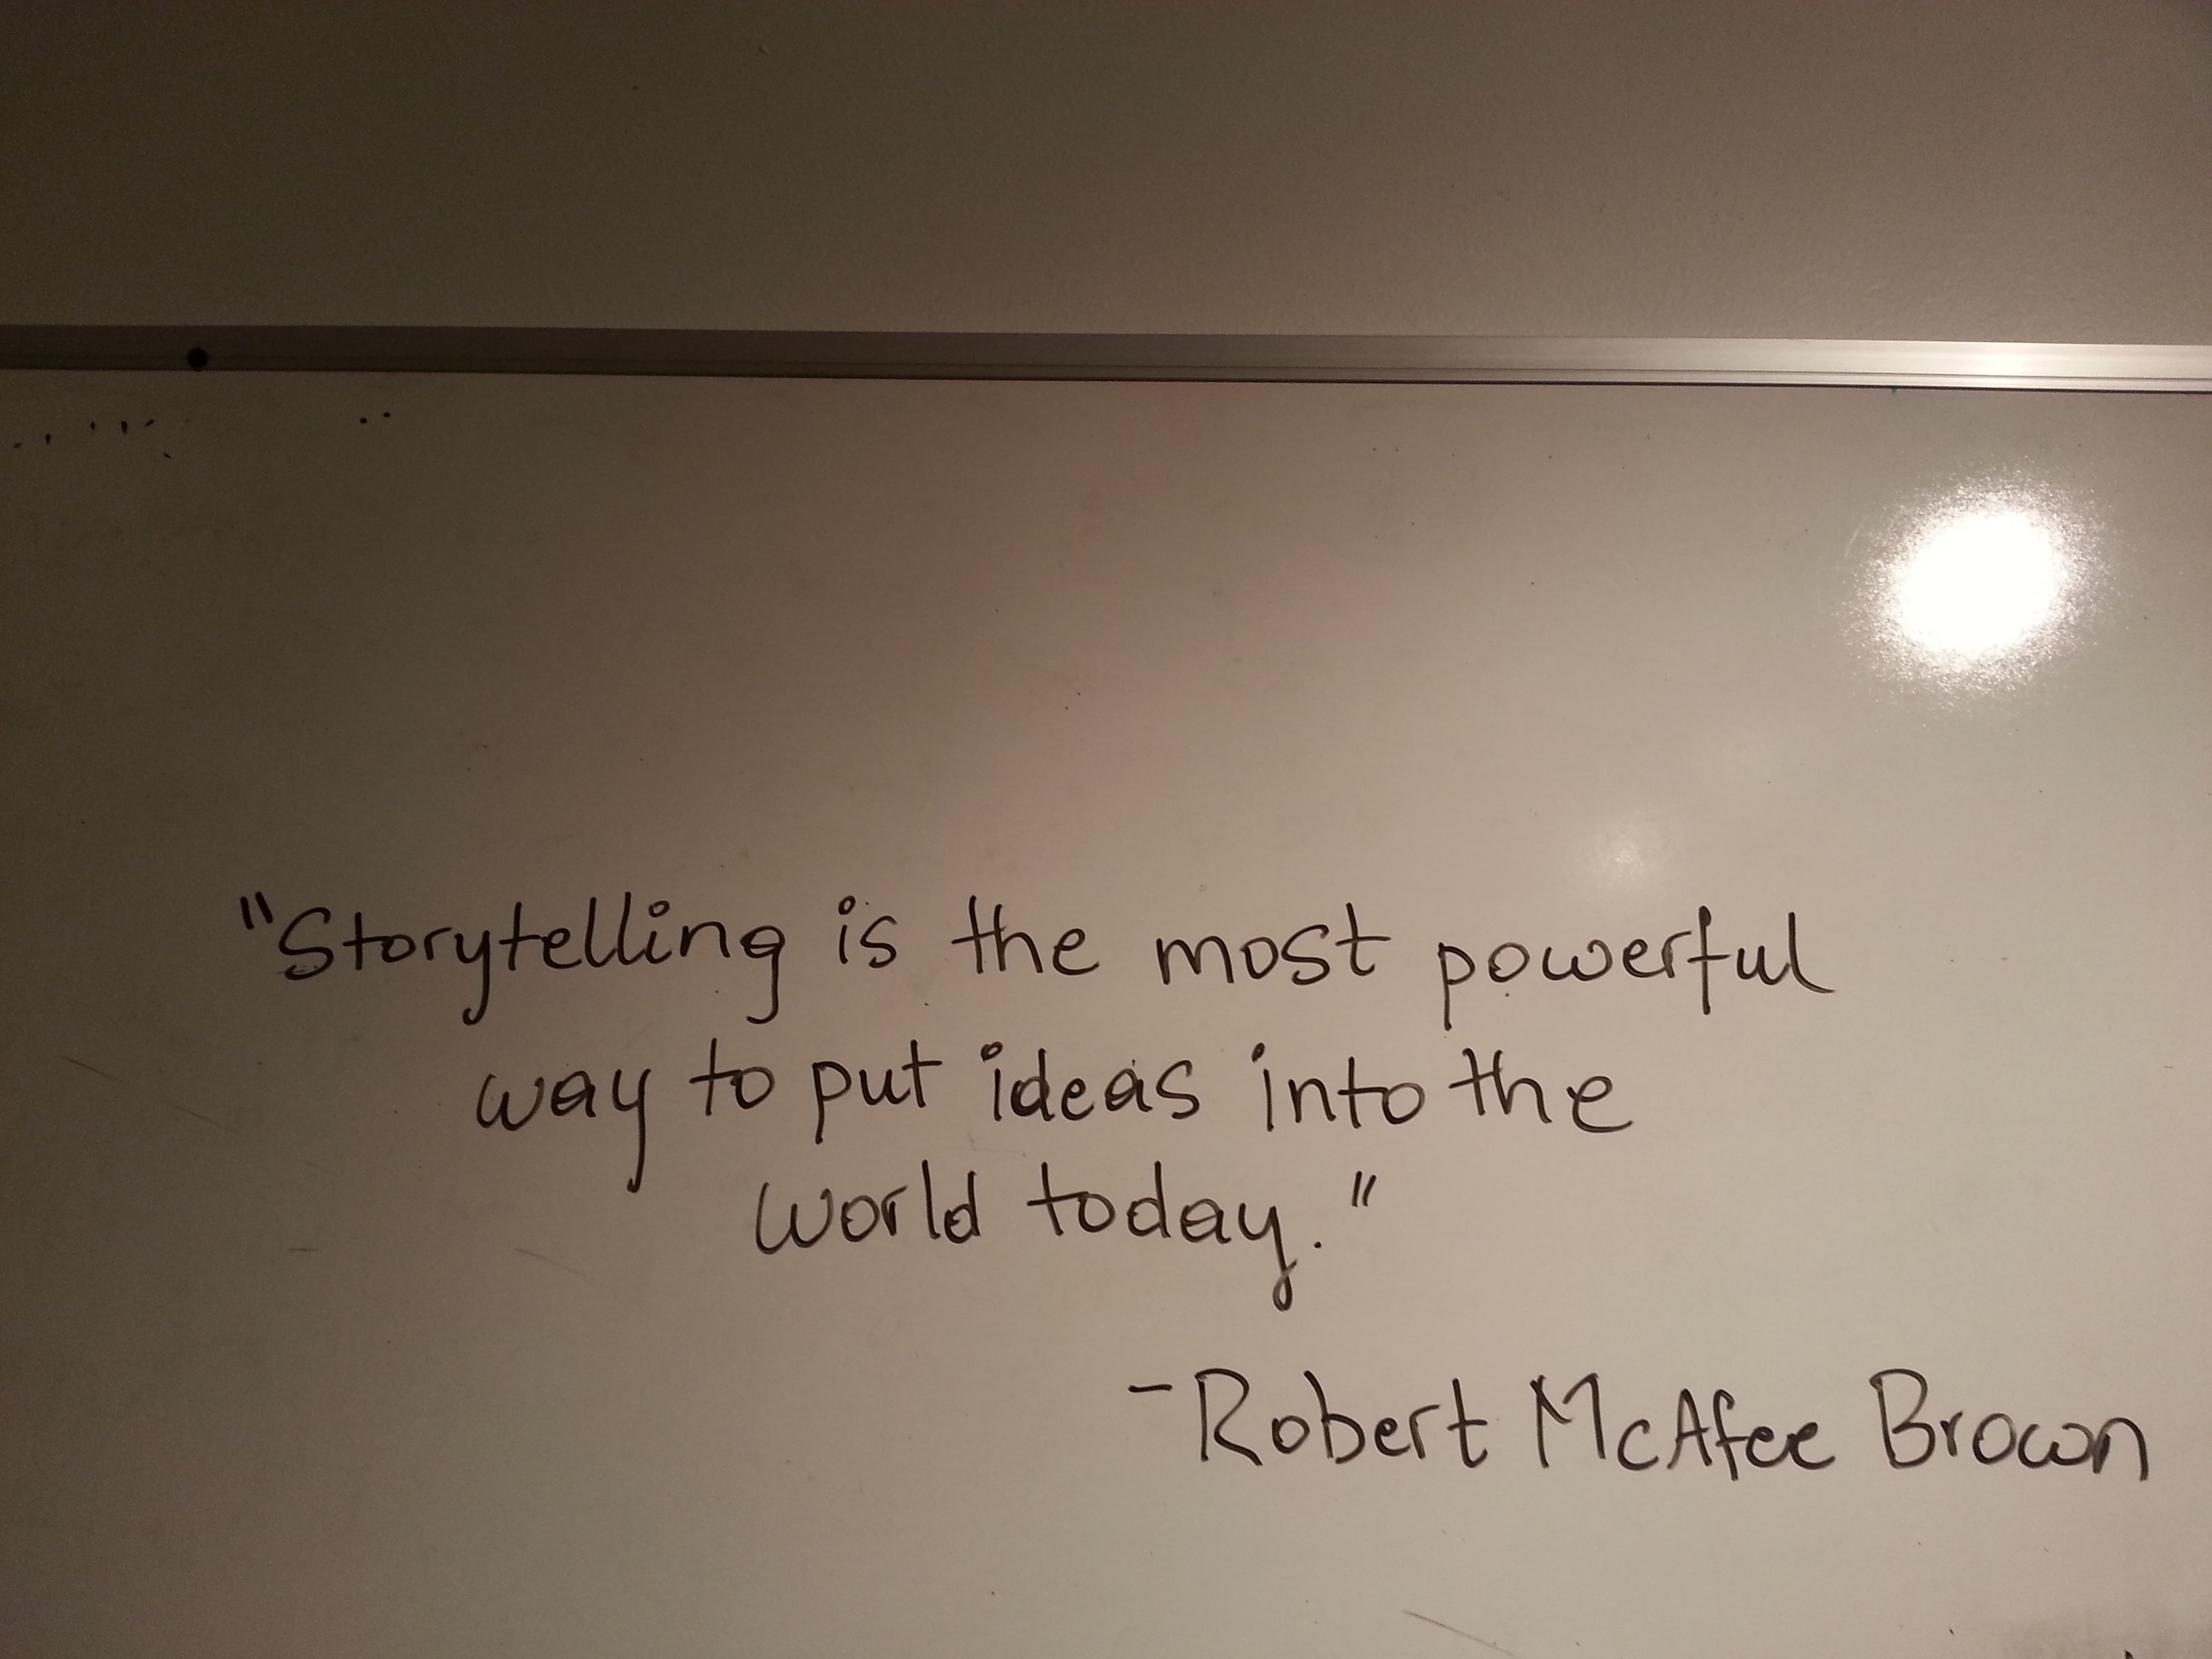 "Storytelling is the most powerful
way to put ideas into the
world today."
-Robert McAfee Brown